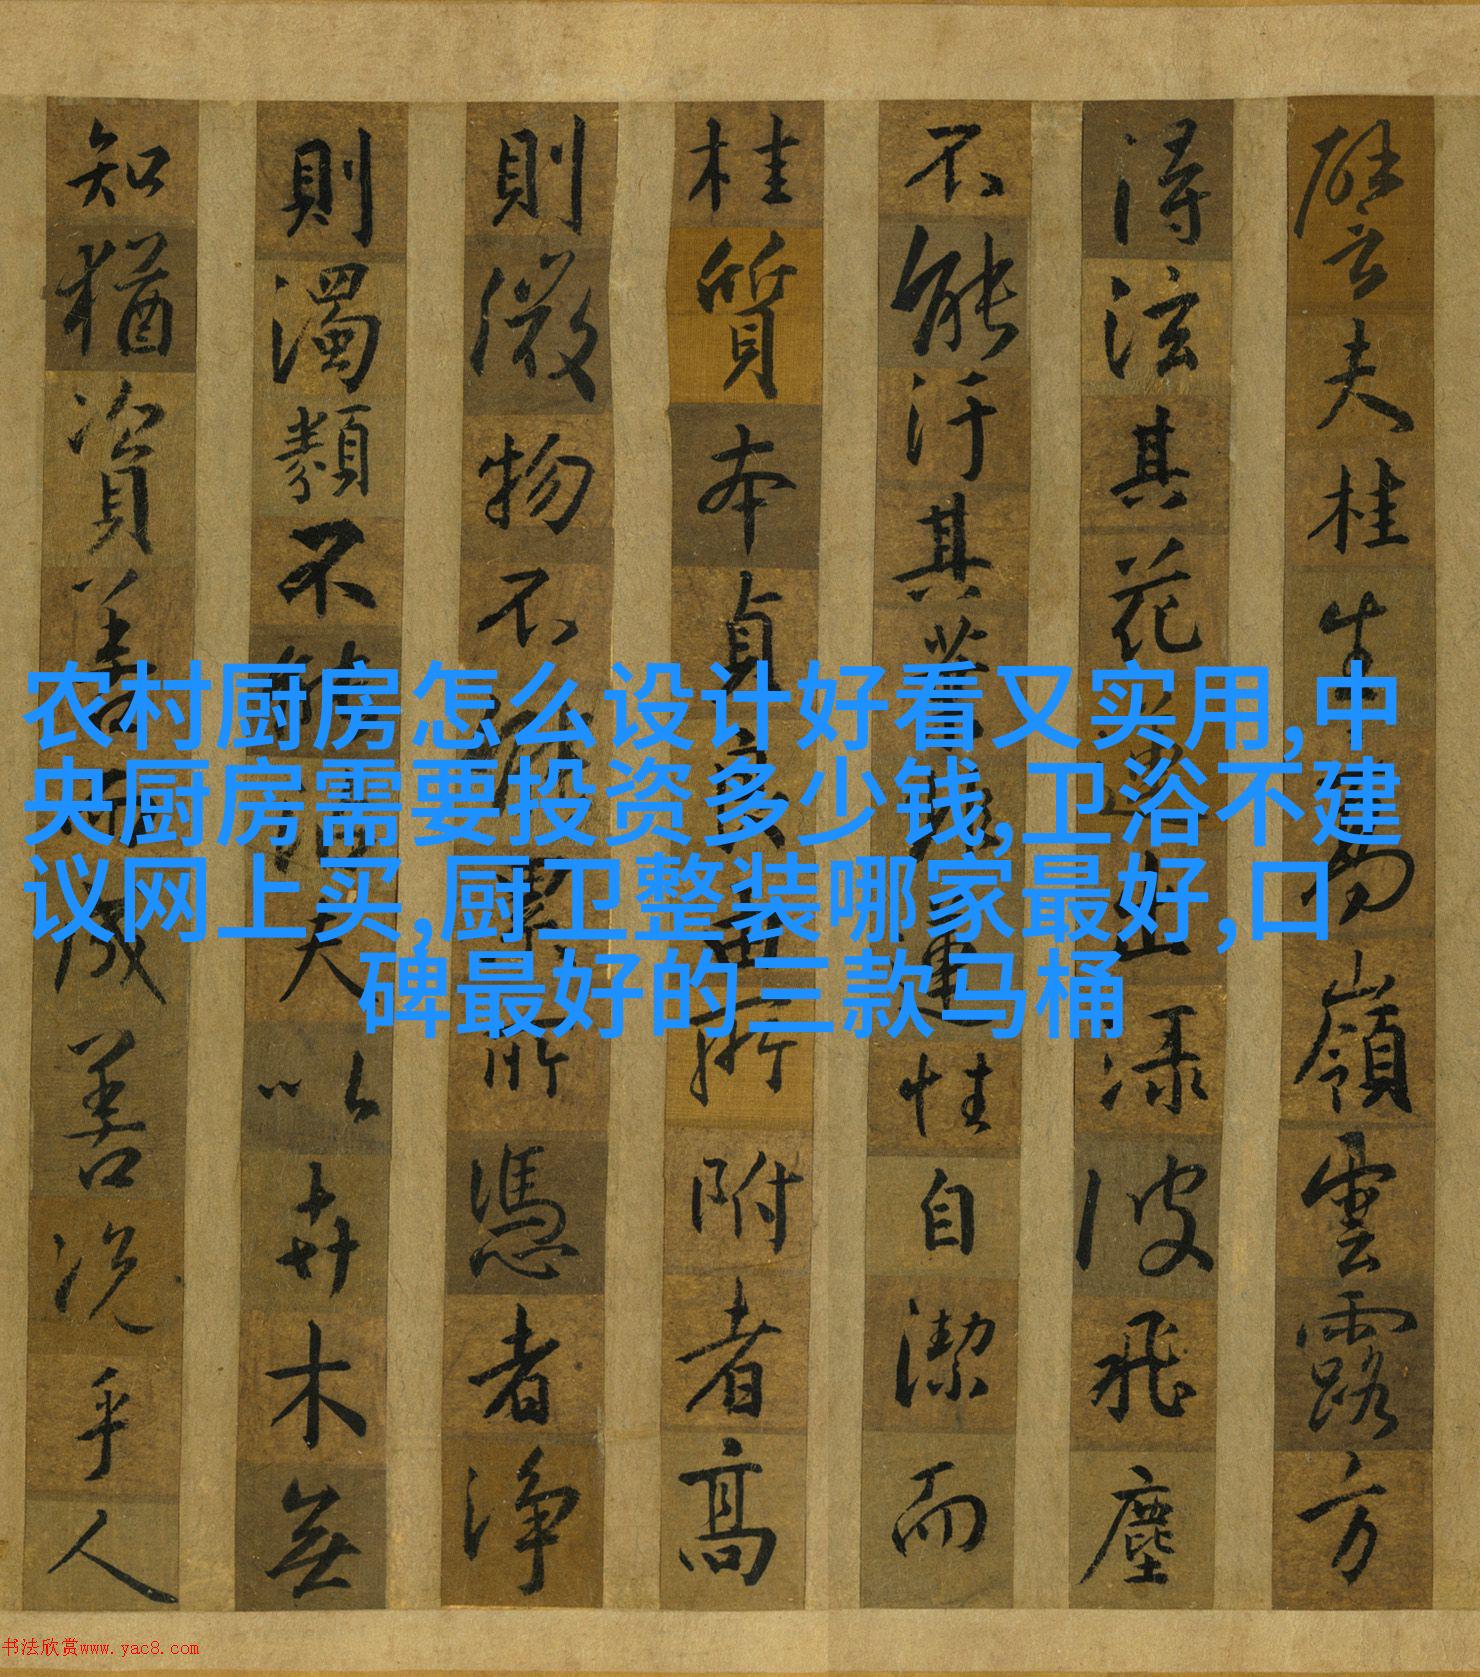 譬夫桂生嶺雲露方
得泫其花蓮出淥波飛塵
不能汙其葉非蓮性自潔而
桂質本貞良由所附者高
則微物不能累所憑者淨
則濁類不能沾夫以卉木無
知猶資善而成善況乎人
农村厨房怎么设计好看又实用,中
央厨房需要投资多少钱,卫浴不建
议网上买,厨卫整装哪家最好,口
碑最好的三款马桶
书法欣赏www.yac8.com